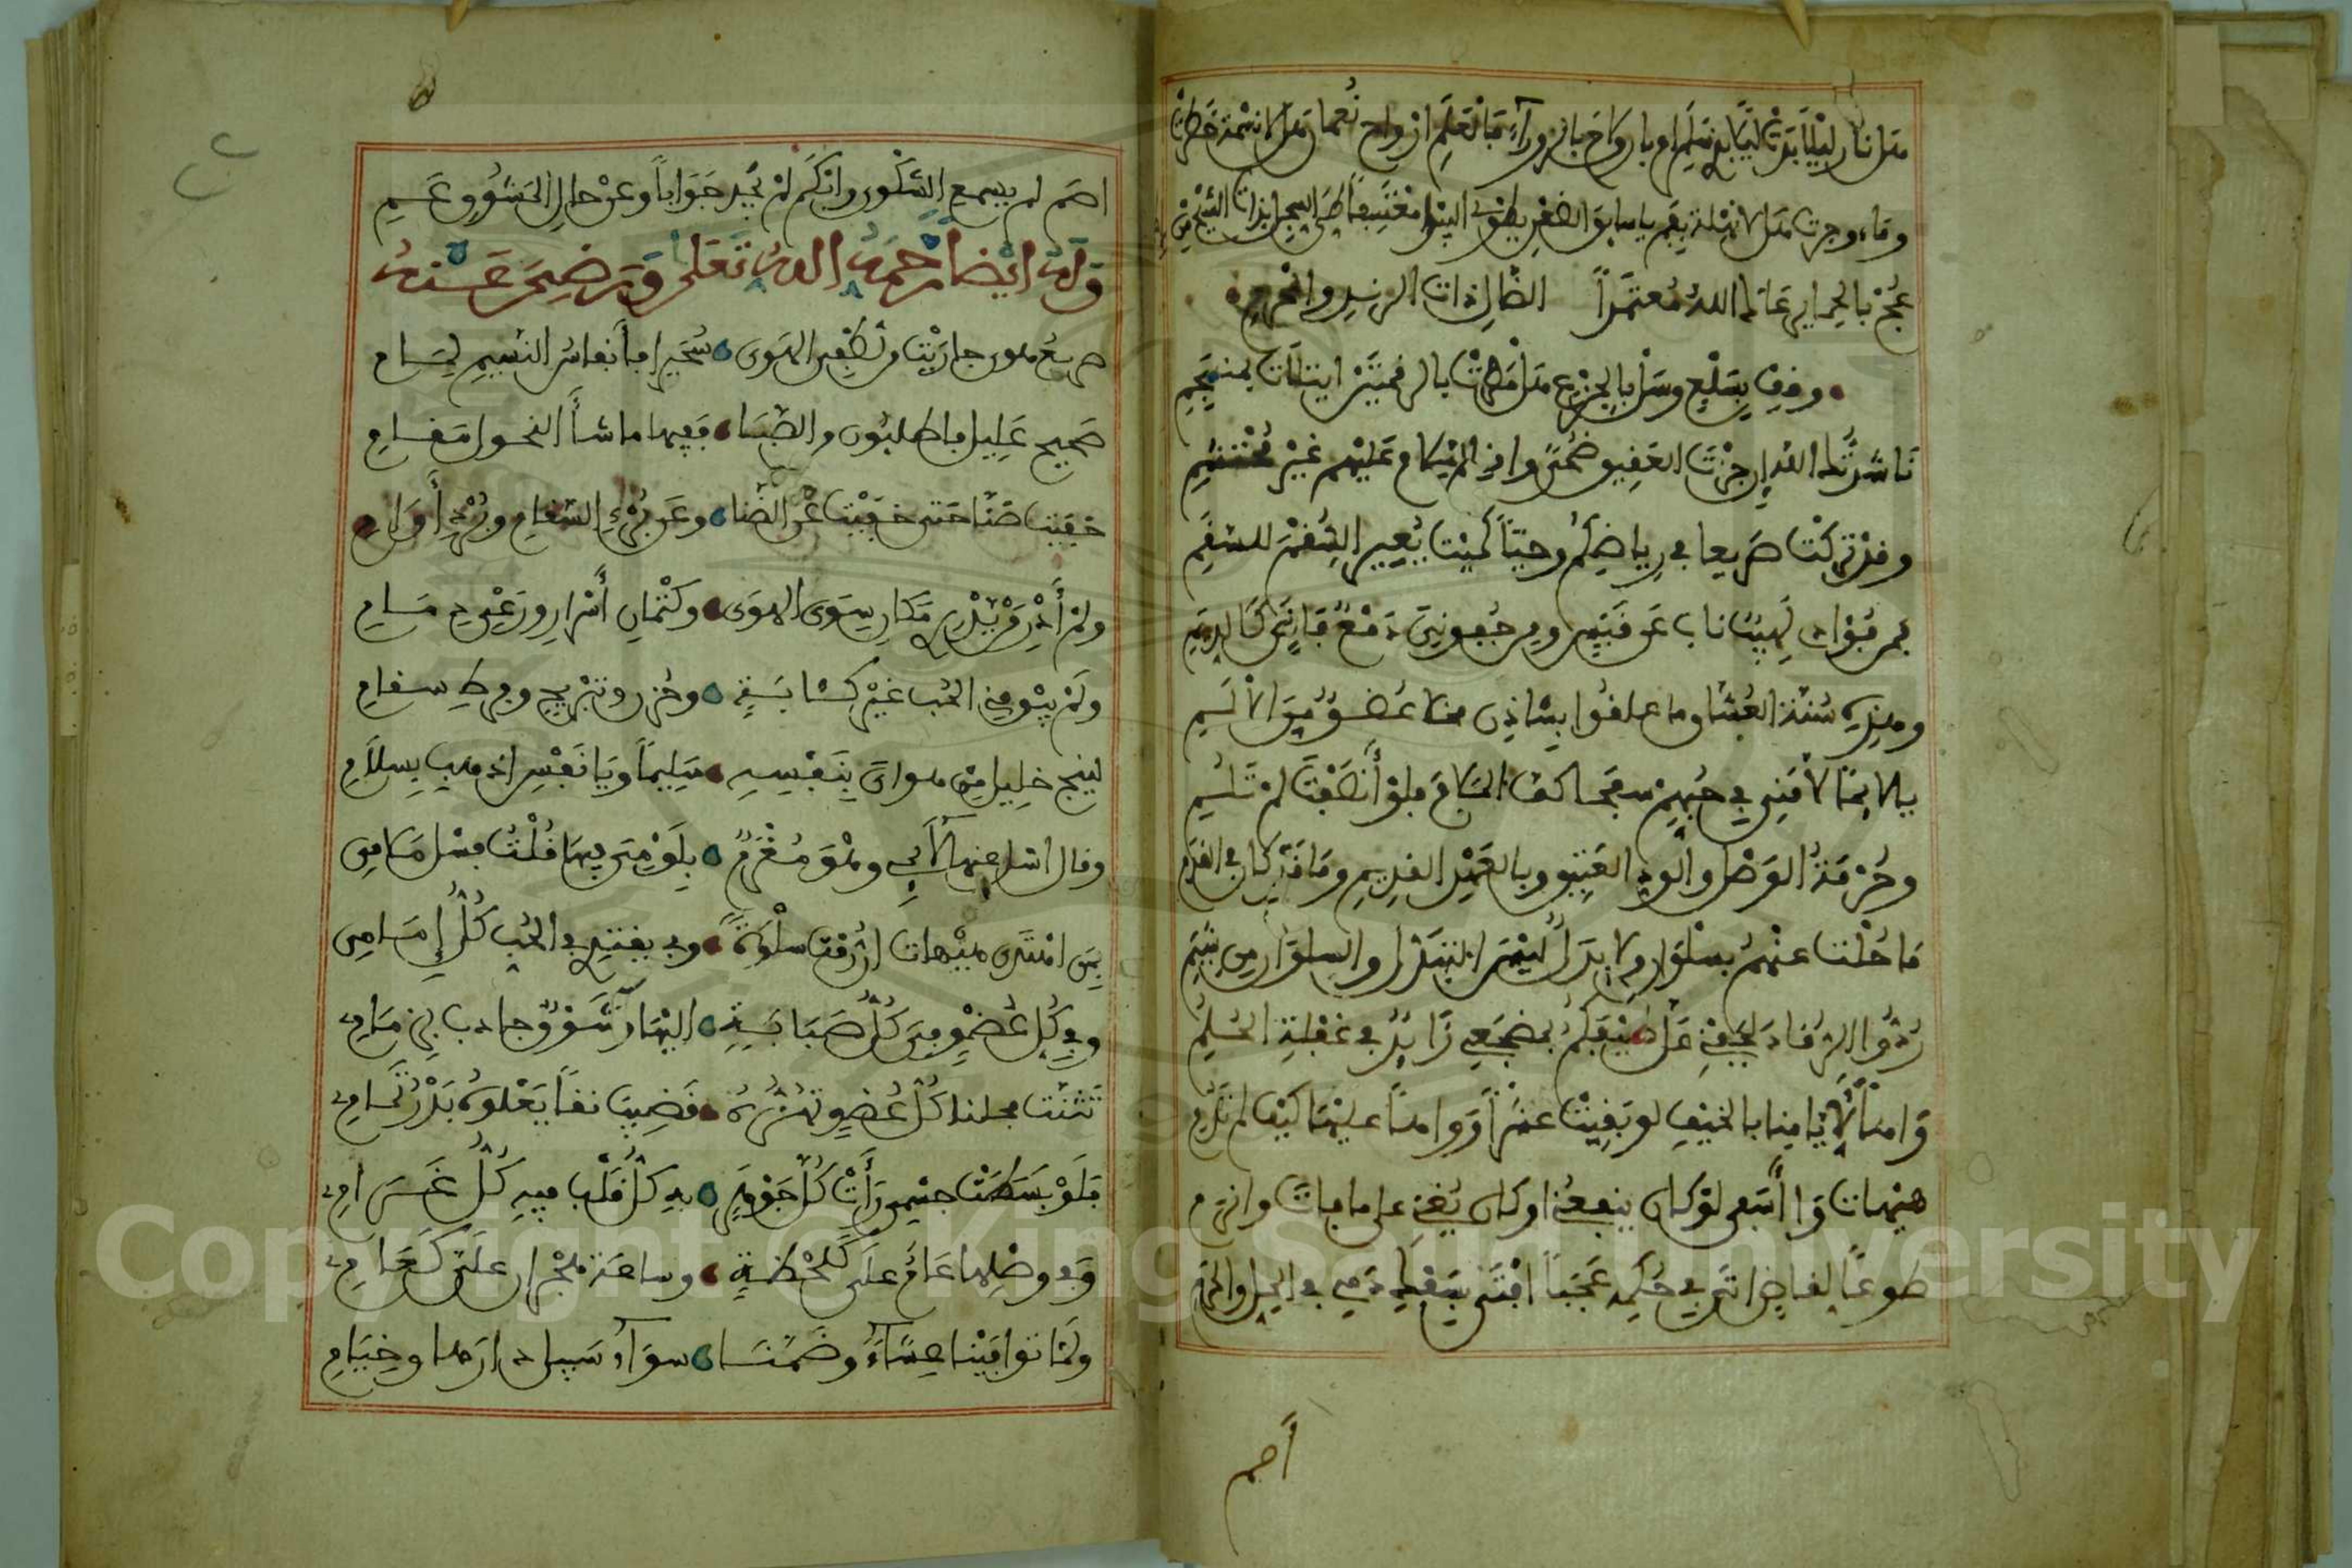 هل نار ليلى بدت ليلا بذي سلم ام بارق لاح بالزوراء فالعلم ارواح نعمان هلا نسمة سحرا
وماء وجرة هلا نهلة بفم يا سايق الظعن يطوي البيد معتسفا طي السجل بذات الشيح من
عج بالحمى يا رعاك الله معتمدا الضال ذات الرند والخزم
وقف بسلع وسل بالجزع هل مطرت بالرقمتين اثيلات بمنسجم
ناشدتك الله ان جزت العقيق ضحى واقر السلام عليهم غير محتشم
وقل تركت صريعا في دياركم حيا كميت يعير السقم للسقم
فمن فؤادي لهيب ناب عن قبس ومن جفوني دمع فاض كالديم
وهذه سنة العشاق ما علقوا بشاذن فخلا عضو من الالم
يا لائما لامني في حبهم سفها كف الملام فلو أنصفت لم تلم
وحرمة الوصل والود العتيق وبالعهد القديم وما قد كان في القدم
ما حلت عنهم بسلوان ولا بدل ليس التبدل والسلوان من شيمي
ردوا الرقاد لجفني عل طيفكم بمضجعي زائر في غفلة الحلم
واها لايامنا بالخيف لو بقيت عشرا وواها عليها كيف لم تدم
هيهات وا أسفي لو كان ينفعني او كان يغني على ما فات واندمي
طوعا لقاض اتى في حكمه عجبا افتى بسفك دمي في الحل والحرم
أصم
اصم لم يسمع الشكوى وابكم لم يحر جوابا وعن حال المشوق عمي
وله ايضا رحمه الله تعلى ورضي عنه
صريع هوى جاريت من لطفي الهوى سحيرا فأنفاس النسيم لمامي
صحيح عليل فاطلبوني من الصبا ففيها كما شأ النحول مقامي
خفيت ضنا حتى خفيت عن الضنا وعن برء اسقامي وبرد أوامي
ولم أدر من يدري مكاني سوى الهوى وكتمان أسراري ورعي ذمامي
ولم يبق مني الحب غير كئابة وحزن وتبريح وفرط سقامي
لينج خلي من هواي بنفسه سليما ويا نفس اذهبي بسلام
وقال اسل عنها لائمي وهو مغرم بلومي فيها قلت فاسل ملامي
بمن اهتدي هيهات ان رمت سلوة وبي يقتدي في الحب كل إمامي
وفي كل عضو في كل صبابة اليها وشوق جاذب بزمامي
تثنت فخلنا كل عضو تهزه قضيب نقا يعلوه بدر تمام
فلو بسطت جسمي رأت كل جوهر به كل قلب فيه كل غرامي
وفي وصلها عام علي كلحظة وساعة هجران علي كعام
ولما توافينا عشاء وضمنا سوآء سبيلى دارها وخيامي